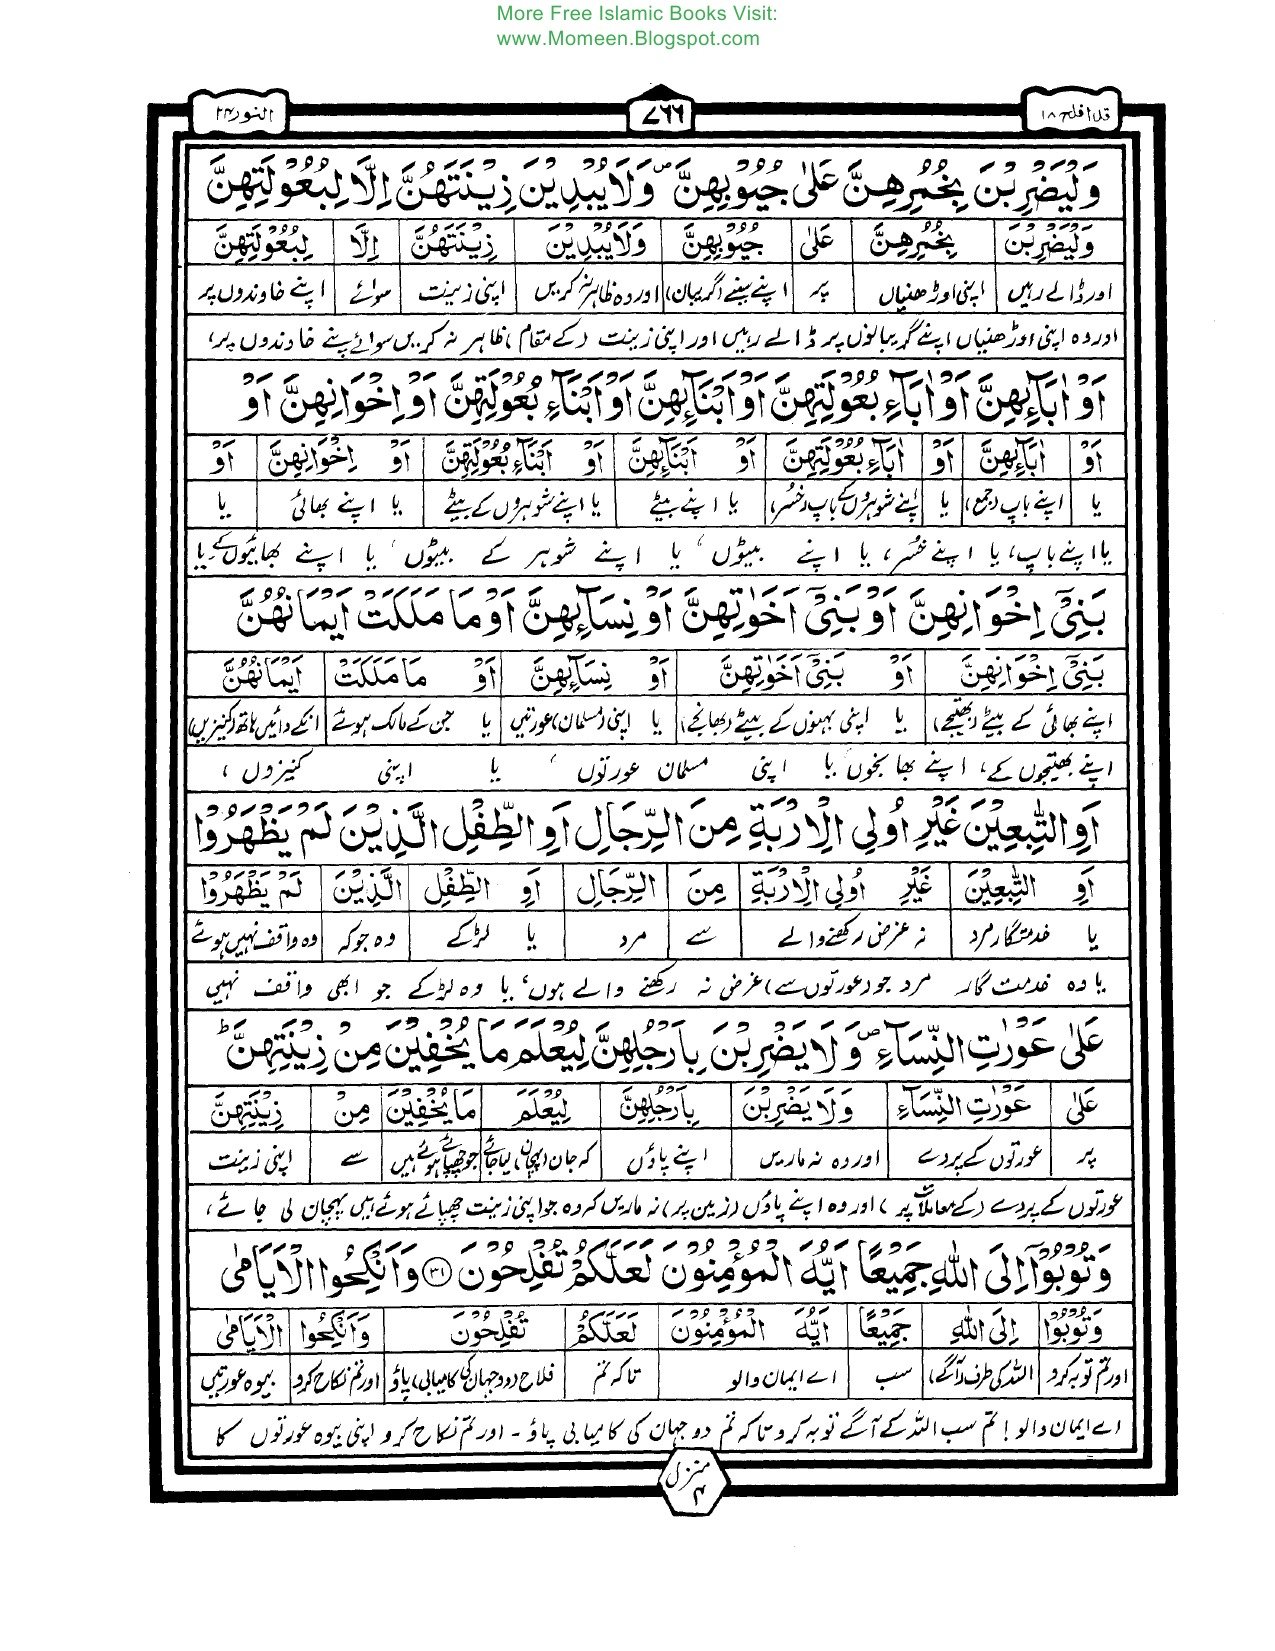 More Free Islamic Books Visit:
www.Momeen.Blogspot.com
قد افلح ۱۸
۷۶۶
النور ۲۴
وَلْيَضْرِبْنَ بِخُمُرِهِنَّ عَلٰى جُيُوْبِهِنَّ ۪ وَلَا يُبْدِيْنَ زِيْنَتَهُنَّ اِلَّا لِبُعُوْلَتِهِنَّ
وَلْيَضْرِبْنَ بِخُمُرِهِنَّ عَلٰى جُيُوْبِهِنَّ وَلَا يُبْدِيْنَ زِيْنَتَهُنَّ اِلَّا لِبُعُوْلَتِهِنَّ
اور ڈالے رہیں اپنی اوڑھنیاں پر اپنے سینے (گریبان) اور وہ ظاہر نہ کریں اپنی زینت سوائے اپنے خاوندوں پر
اور وہ اپنی اوڑھنیاں اپنے گریبانوں پر ڈالے رہیں اور اپنی زینت (کے مقام) ظاہر نہ کریں سوائے اپنے خاوندوں پر،
اَوْ اٰبَآئِهِنَّ اَوْ اٰبَآءِ بُعُوْلَتِهِنَّ اَوْ اَبْنَآئِهِنَّ اَوْ اَبْنَآءِ بُعُوْلَتِهِنَّ اَوْ اِخْوَانِهِنَّ اَوْ
اَوْ اٰبَآئِهِنَّ اَوْ اٰبَآءِ بُعُوْلَتِهِنَّ اَوْ اَبْنَآئِهِنَّ اَوْ اَبْنَآءِ بُعُوْلَتِهِنَّ اَوْ اِخْوَانِهِنَّ اَوْ
یا اپنے باپ (جمع) یا اپنے شوہروں کے باپ (خسر) یا اپنے بیٹے یا اپنے شوہروں کے بیٹے یا اپنے بھائی یا
یا اپنے باپ، یا اپنے خسر، یا اپنے بیٹوں، یا اپنے شوہر کے بیٹوں، یا اپنے بھائیوں کے یا
بَنِيْٓ اِخْوَانِهِنَّ اَوْ بَنِيْٓ اَخَوٰتِهِنَّ اَوْ نِسَآئِهِنَّ اَوْ مَا مَلَكَتْ اَيْمَانُهُنَّ
بَنِيْٓ اِخْوَانِهِنَّ اَوْ بَنِيْٓ اَخَوٰتِهِنَّ اَوْ نِسَآئِهِنَّ اَوْ مَا مَلَكَتْ اَيْمَانُهُنَّ
اپنے بھائی کے بیٹے (بھتیجے) یا اپنی بہنوں کے بیٹے (بھانجے) یا اپنی (مسلمان) عورتیں یا جن کے مالک ہوئے انکے دائیں ہاتھ (کنیزیں)
اپنے بھتیجوں کے، اپنے بھانجوں یا اپنی مسلمان عورتوں، یا اپنی کنیزوں،
اَوِ التّٰبِعِيْنَ غَيْرِ اُولِي الْاِرْبَةِ مِنَ الرِّجَالِ اَوِ الطِّفْلِ الَّذِيْنَ لَمْ يَظْهَرُوْا
اَوِ التّٰبِعِيْنَ غَيْرِ اُولِي الْاِرْبَةِ مِنَ الرِّجَالِ اَوِ الطِّفْلِ الَّذِيْنَ لَمْ يَظْهَرُوْا
یا خدمتگار مرد نہ غرض رکھنے والے سے مرد یا لڑکے وہ جو کہ وہ واقف نہیں ہوئے
یا وہ خدمت گار مرد جو (عورتوں سے) غرض نہ رکھنے والے ہوں، یا وہ لڑکے جو ابھی واقف نہیں
عَلٰى عَوْرٰتِ النِّسَآءِ ۪ وَلَا يَضْرِبْنَ بِاَرْجُلِهِنَّ لِيُعْلَمَ مَا يُخْفِيْنَ مِنْ زِيْنَتِهِنَّ ؕ
عَلٰى عَوْرٰتِ النِّسَآءِ وَلَا يَضْرِبْنَ بِاَرْجُلِهِنَّ لِيُعْلَمَ مَا يُخْفِيْنَ مِنْ زِيْنَتِهِنَّ
پر عورتوں کے پردے اور وہ نہ ماریں اپنے پاؤں کہ جان (پہچان) لیا جائے جو چھپائے ہوئے ہیں سے اپنی زینت
عورتوں کے پردے (کے معاملات) پر، اور وہ اپنے پاؤں (زمین پر) نہ ماریں کہ وہ جو اپنی زینت چھپائے ہوئے ہیں پہچان لی جائے،
وَتُوْبُوْٓا اِلَى اللّٰهِ جَمِيْعًا اَيُّهَ الْمُؤْمِنُوْنَ لَعَلَّكُمْ تُفْلِحُوْنَ ۝۳۱ وَاَنْكِحُوا الْاَيَامٰى
وَتُوْبُوْٓا اِلَى اللّٰهِ جَمِيْعًا اَيُّهَ الْمُؤْمِنُوْنَ لَعَلَّكُمْ تُفْلِحُوْنَ وَاَنْكِحُوا الْاَيَامٰى
اور تم توبہ کرو اللہ کی طرف (آگے) سب اے ایمان والو تاکہ تم فلاح (دو جہان کی کامیابی) پاؤ اور تم نکاح کرو بیوہ عورتیں
اے ایمان والو! تم سب اللہ کے آگے توبہ کرو تاکہ تم دو جہان کی کامیابی پاؤ - اور تم نکاح کرو اپنی بیوہ عورتوں کا
منزل ۴